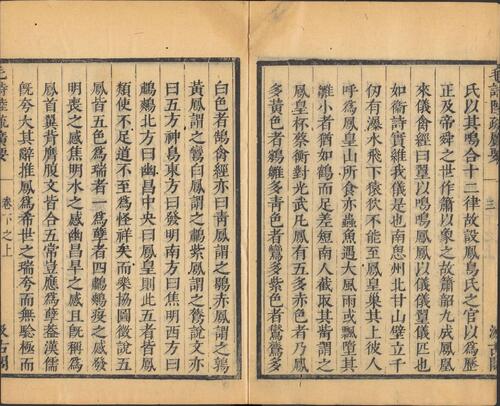 氏以其鳴合十二律故設鳳鳥氏之官以爲曆
正及帝舜之世作簫以象之故簫韶九成鳳凰
來儀禽經曰以鳴鳴鳳鳳以儀儀儀匹也
如衛詩實維我儀是也南恩州北甘山壁立千
仞有瀑水飛下猿狖不能至鳳皇巢其上彼人
呼爲鳳皇山所食亦蟲魚遇大風雨或飄墮其
雛小者猶如鶴而足差短南人截取其觜謂之
鳳皇杯蔡衡對光武凡鳳有五多赤色者乃鳳
多黃色者鵷雛多青色者鸞多紫色者鸑鷟多
白色者鵠禽經亦曰青鳳謂之鶡赤鳳謂之鶉
黃鳳謂之鸞白鳳謂之鷫紫鳳謂之鷟說文亦
曰五方神鳥東方曰發明南方曰焦明西方曰
鷫鷞北方曰幽昌中央曰鳳皇則此五者皆鳳
類使不足道不至爲怪祥矣而樂協圖徵說五
鳳皆五色爲瑞者一爲孽者四鷫鷞疫之感發
明喪之感焦明水之感幽昌旱之感且旣稱爲
鳳首翼背膺腹文皆合五常豈應爲孽蓋漢儒
旣夸大其辭推鳳爲希世之瑞夸而無驗極而
毛詩陸疏廣要
卷下之上
汲古閣